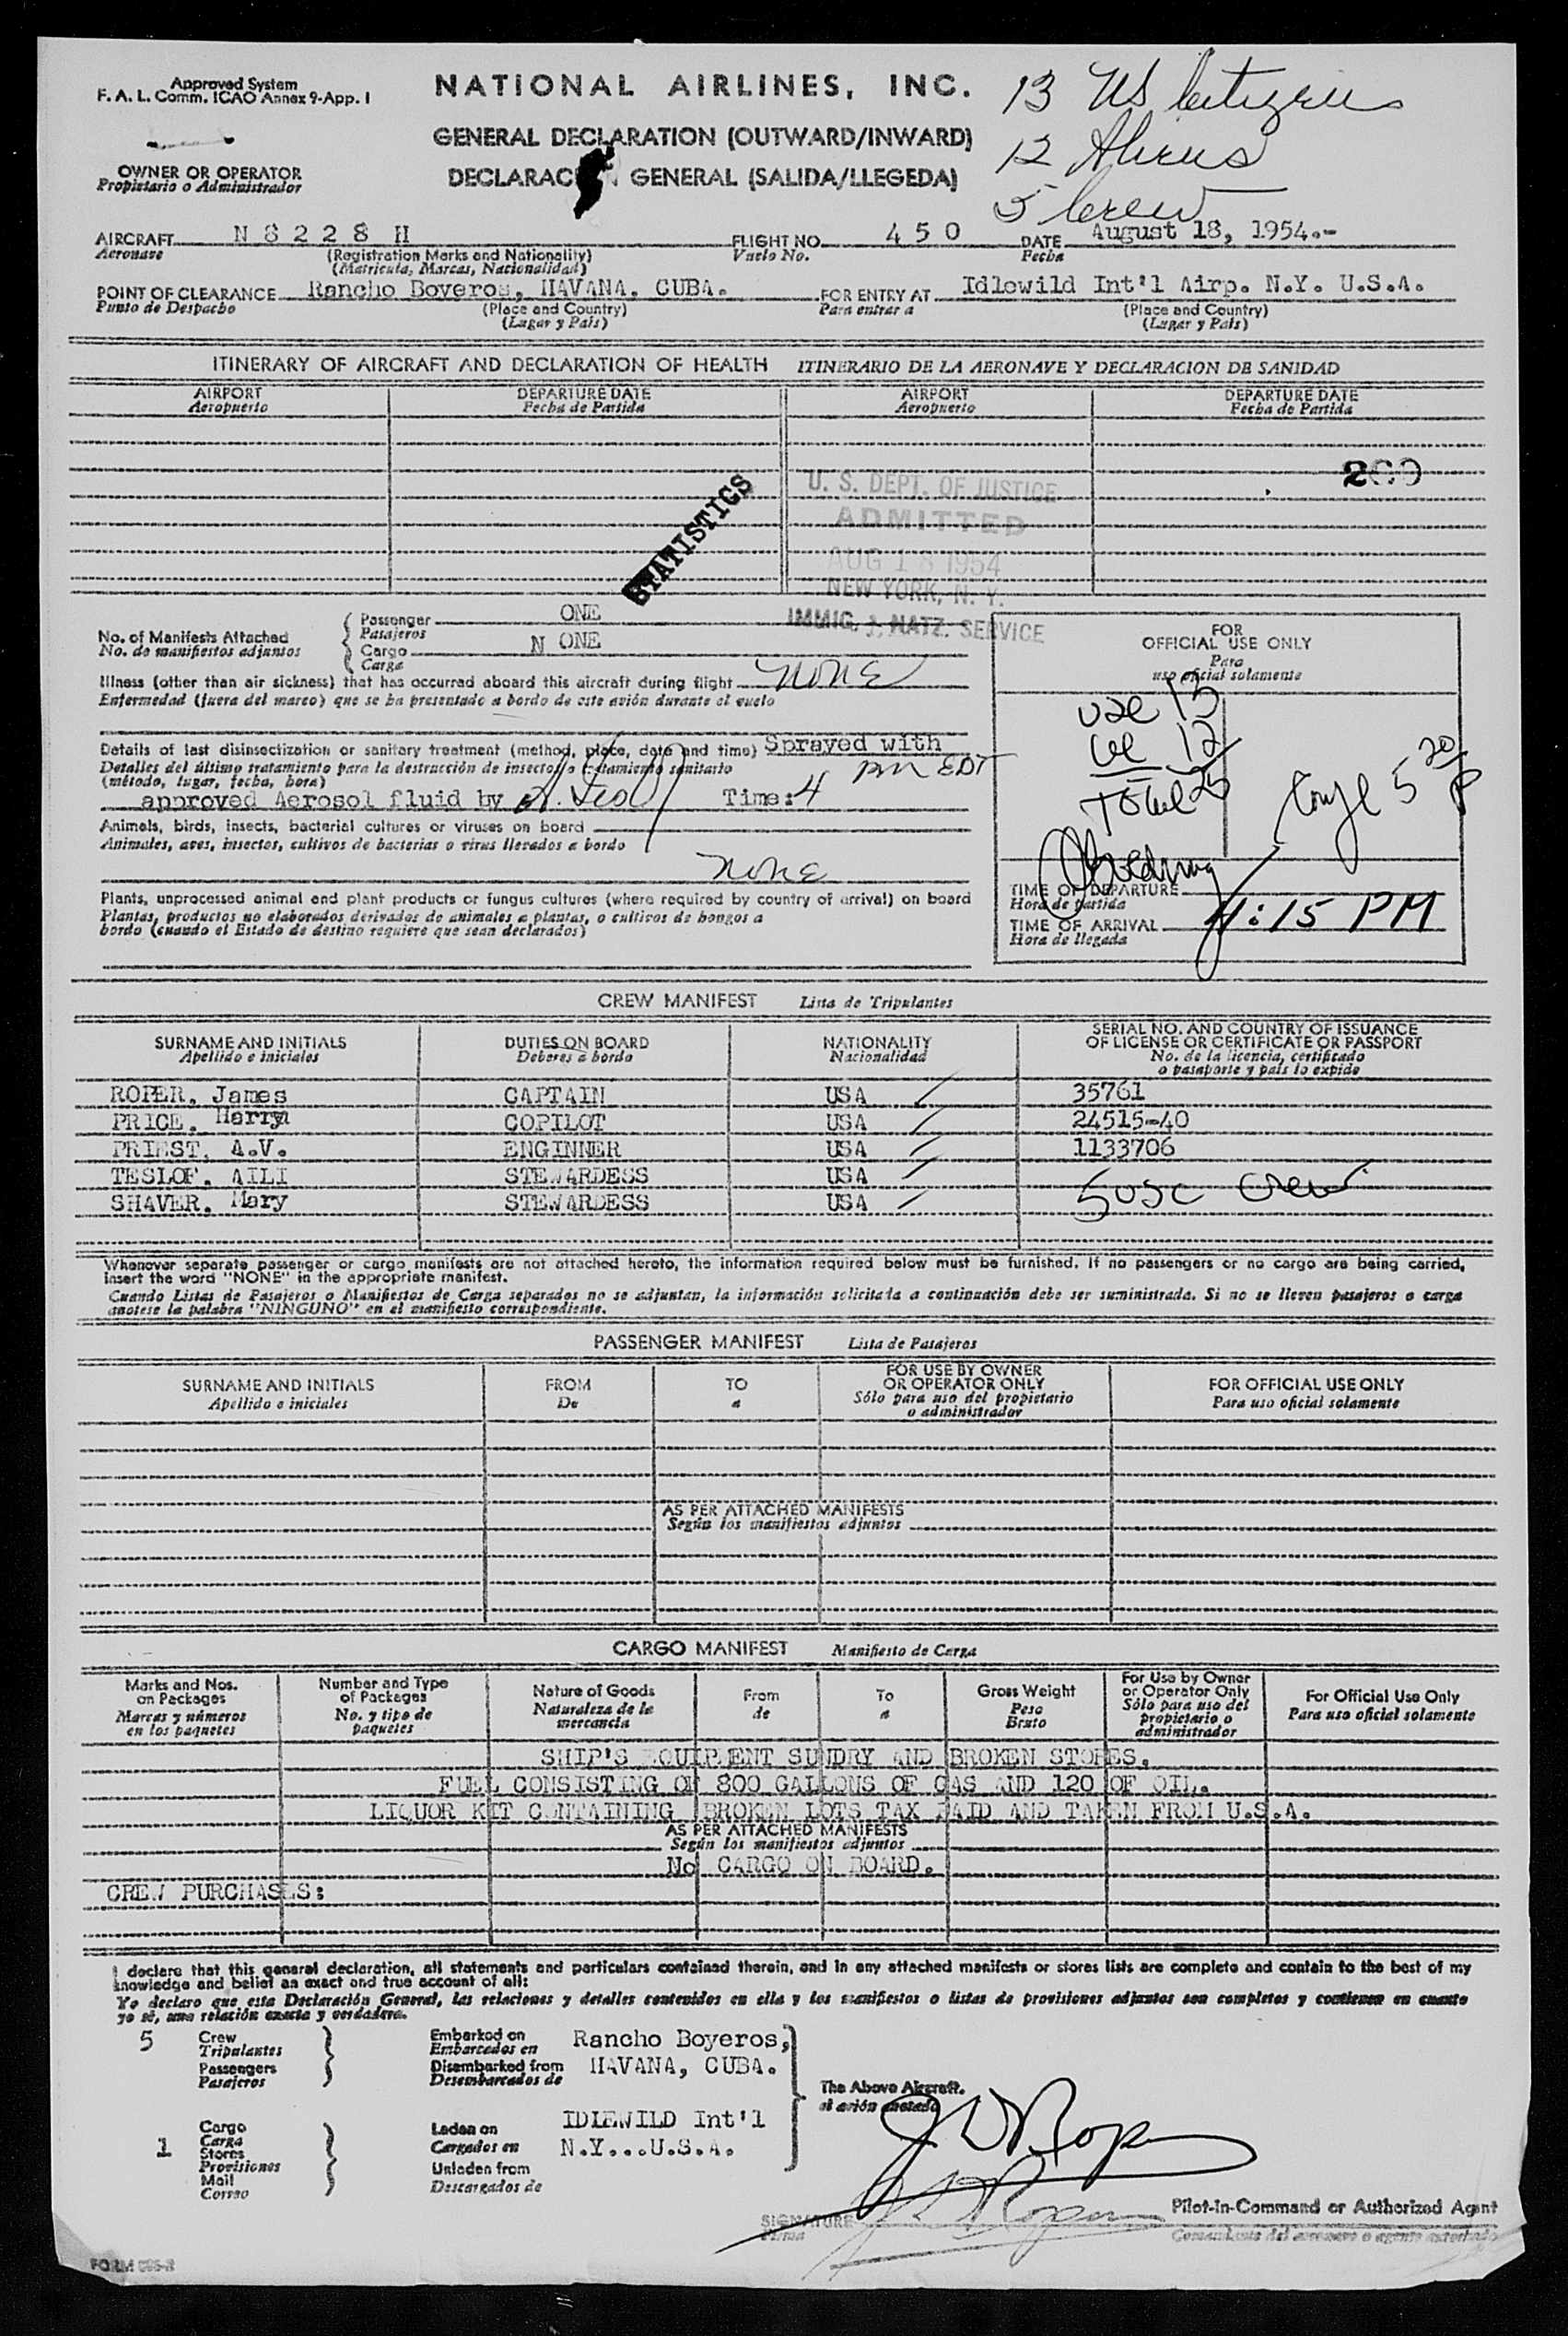 Approved System
F. A. L. Comm. ICAO Annex 9-App. I
NATIONAL AIRLINES, INC.
13 US Citizens
GENERAL DECLARATION (OUTWARD/INWARD)
12 Aliens
OWNER OR OPERATOR
Propietario o Administrador
DECLARAC N GENERAL (SALIDA/LLEGEDA)
5 Crew
AIRCRAFT N 8 2 2 8 H FLIGHT NO. 4 5 0 DATE August 18, 1954.-
Aeronave (Registration Marks and Nationality) Vuelo No. Fecha
(Matricula, Marcas, Nacionalidad)
POINT OF CLEARANCE Rancho Boyeros, HAVANA, CUBA. FOR ENTRY AT Idlewild Int'l Airp. N.Y. U.S.A.
Punto de Despacho (Place and Country) Para entrar a (Place and Country)
(Lugar y País) (Lugar y País)
ITINERARY OF AIRCRAFT AND DECLARATION OF HEALTH ITINERARIO DE LA AERONAVE Y DECLARACION DE SANIDAD
AIRPORT DEPARTURE DATE AIRPORT DEPARTURE DATE
Aeropuerto Fecha de Partida Aeropuerto Fecha de Partida
STATISTICS
U. S. DEPT. OF JUSTICE
ADMITTED
AUG 18 1954
NEW YORK, N. Y.
IMMIG. & NATZ. SERVICE
No. of Manifests Attached
No. de manifiestos adjuntos
Passenger ONE
Pasajeros
Cargo N ONE
Carga
FOR
OFFICIAL USE ONLY
Para
uso oficial solamente
Illness (other than air sickness) that has occurred aboard this aircraft during flight none
Enfermedad (fuera del mareo) que se ha presentado a bordo de este avión durante el vuelo
Details of last disinsectization or sanitary treatment (method, place, date and time) Sprayed with
Detalles del último tratamiento para la destrucción de insectos o tratamiento sanitario pm EDT
(método, lugar, fecha, hora)
approved Aerosol fluid by Time: 4
USC 13
12
Total 25
5 20/P
Animals, birds, insects, bacterial cultures or viruses on board
Animales, aves, insectos, cultivos de bacterias o virus llevados a bordo
none
Plants, unprocessed animal and plant products or fungus cultures (where required by country of arrival) on board
Plantas, productos no elaborados derivados de animales a plantas, o cultivos de hongos a
bordo (cuando el Estado de destino requiere que sean declarados)
TIME OF DEPARTURE
Hora de partida
TIME OF ARRIVAL 4:15 PM
Hora de llegada
CREW MANIFEST Lista de Tripulantes
SURNAME AND INITIALS DUTIES ON BOARD NATIONALITY SERIAL NO. AND COUNTRY OF ISSUANCE
OF LICENSE OR CERTIFICATE OR PASSPORT
Apellido e iniciales Deberes a bordo Nacionalidad No. de la licencia, certificado
o pasaporte y país lo expide
ROPER, James CAPTAIN USA 35761
PRICE, Harry COPILOT USA 24515-40
PRIEST, A.V. ENGINNER USA 1133706
TESLOF, AILI STEWARDESS USA
SHAVER, Mary STEWARDESS USA
5 USC Crew
Whenever separate passenger or cargo manifests are not attached hereto, the information required below must be furnished. If no passengers or no cargo are being carried,
insert the word "NONE" in the appropriate manifest.
Cuando Listas de Pasajeros o Manifiestos de Carga separados no se adjuntan, la información solicitada a continuación debe ser suministrada. Si no se lleven pasajeros o carga
anotese la palabra "NINGUNO" en el manifiesto correspondiente.
PASSENGER MANIFEST Lista de Pasajeros
SURNAME AND INITIALS FROM TO FOR USE BY OWNER
OR OPERATOR ONLY FOR OFFICIAL USE ONLY
Apellido e iniciales De a Sólo para uso del propietario
o administrador Para uso oficial solamente
AS PER ATTACHED MANIFESTS
Según los manifiestos adjuntos
CARGO MANIFEST Manifiesto de Carga
Marks and Nos.
on Packages
Marcas y números
en los paquetes
Number and Type
of Packages
No. y tipo de
paquetes
Nature of Goods
Naturaleza de la
mercancía
From
de
To
a
Gross Weight
Peso
Bruto
For Use by Owner
or Operator Only
Sólo para uso del
propietario o
administrador
For Official Use Only
Para uso oficial solamente
SHIP'S EQUIPMENT SUNDRY AND BROKEN STORES.
FUEL CONSISTING OF 800 GALLONS OF GAS AND 120 OF OIL.
LIQUOR KIT CONTAINING BROKEN LOTS TAX PAID AND TAKEN FROM U.S.A.
AS PER ATTACHED MANIFESTS
Según los manifiestos adjuntos
No CARGO ON BOARD.
CREW PURCHASES:
I declare that this general declaration, all statements and particulars contained therein, and in any attached manifests or stores lists are complete and contain to the best of my
knowledge and belief an exact and true account of all:
Yo declaro que esta Declaración General, las relaciones y detalles contenidos en ella y los manifiestos o listas de provisiones adjuntos son completos y contienen en cuanto
yo sé, una relación exacta y verdadera.
5 Crew
Tripulantes
Passengers
Pasajeros
Embarked on
Embarcados en
Disembarked from
Desembarcados de
Rancho Boyeros,
HAVANA, CUBA.
The Above Aircraft.
el avión anotado
1 Cargo
Carga
Stores
Provisiones
Mail
Correo
Laden on
Cargados en
Unladen from
Descargados de
IDLEWILD Int'l
N.Y...U.S.A.
J W Roper
SIGNATURE
Firma
Pilot-in-Command or Authorized Agent
Comandante del aeronave o agente autorizado
FORM